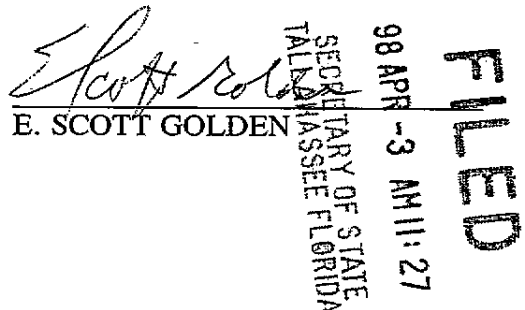 E Scott Golden
E. SCOTT GOLDEN
FILED
98 APR -3 AM 11: 27
SECRETARY OF STATE
TALLAHASSEE FLORIDA